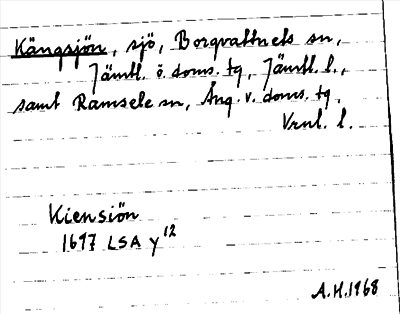 Kängsjön, sjö, Borgvattnets sn,
Jämtl. ö. doms. tg, Jämtl. l.,
samt Ramsele sn, Ång. v. doms. tg,
Vrnl. l.
Kiensiön
1697 LSA y12
A.H.1968